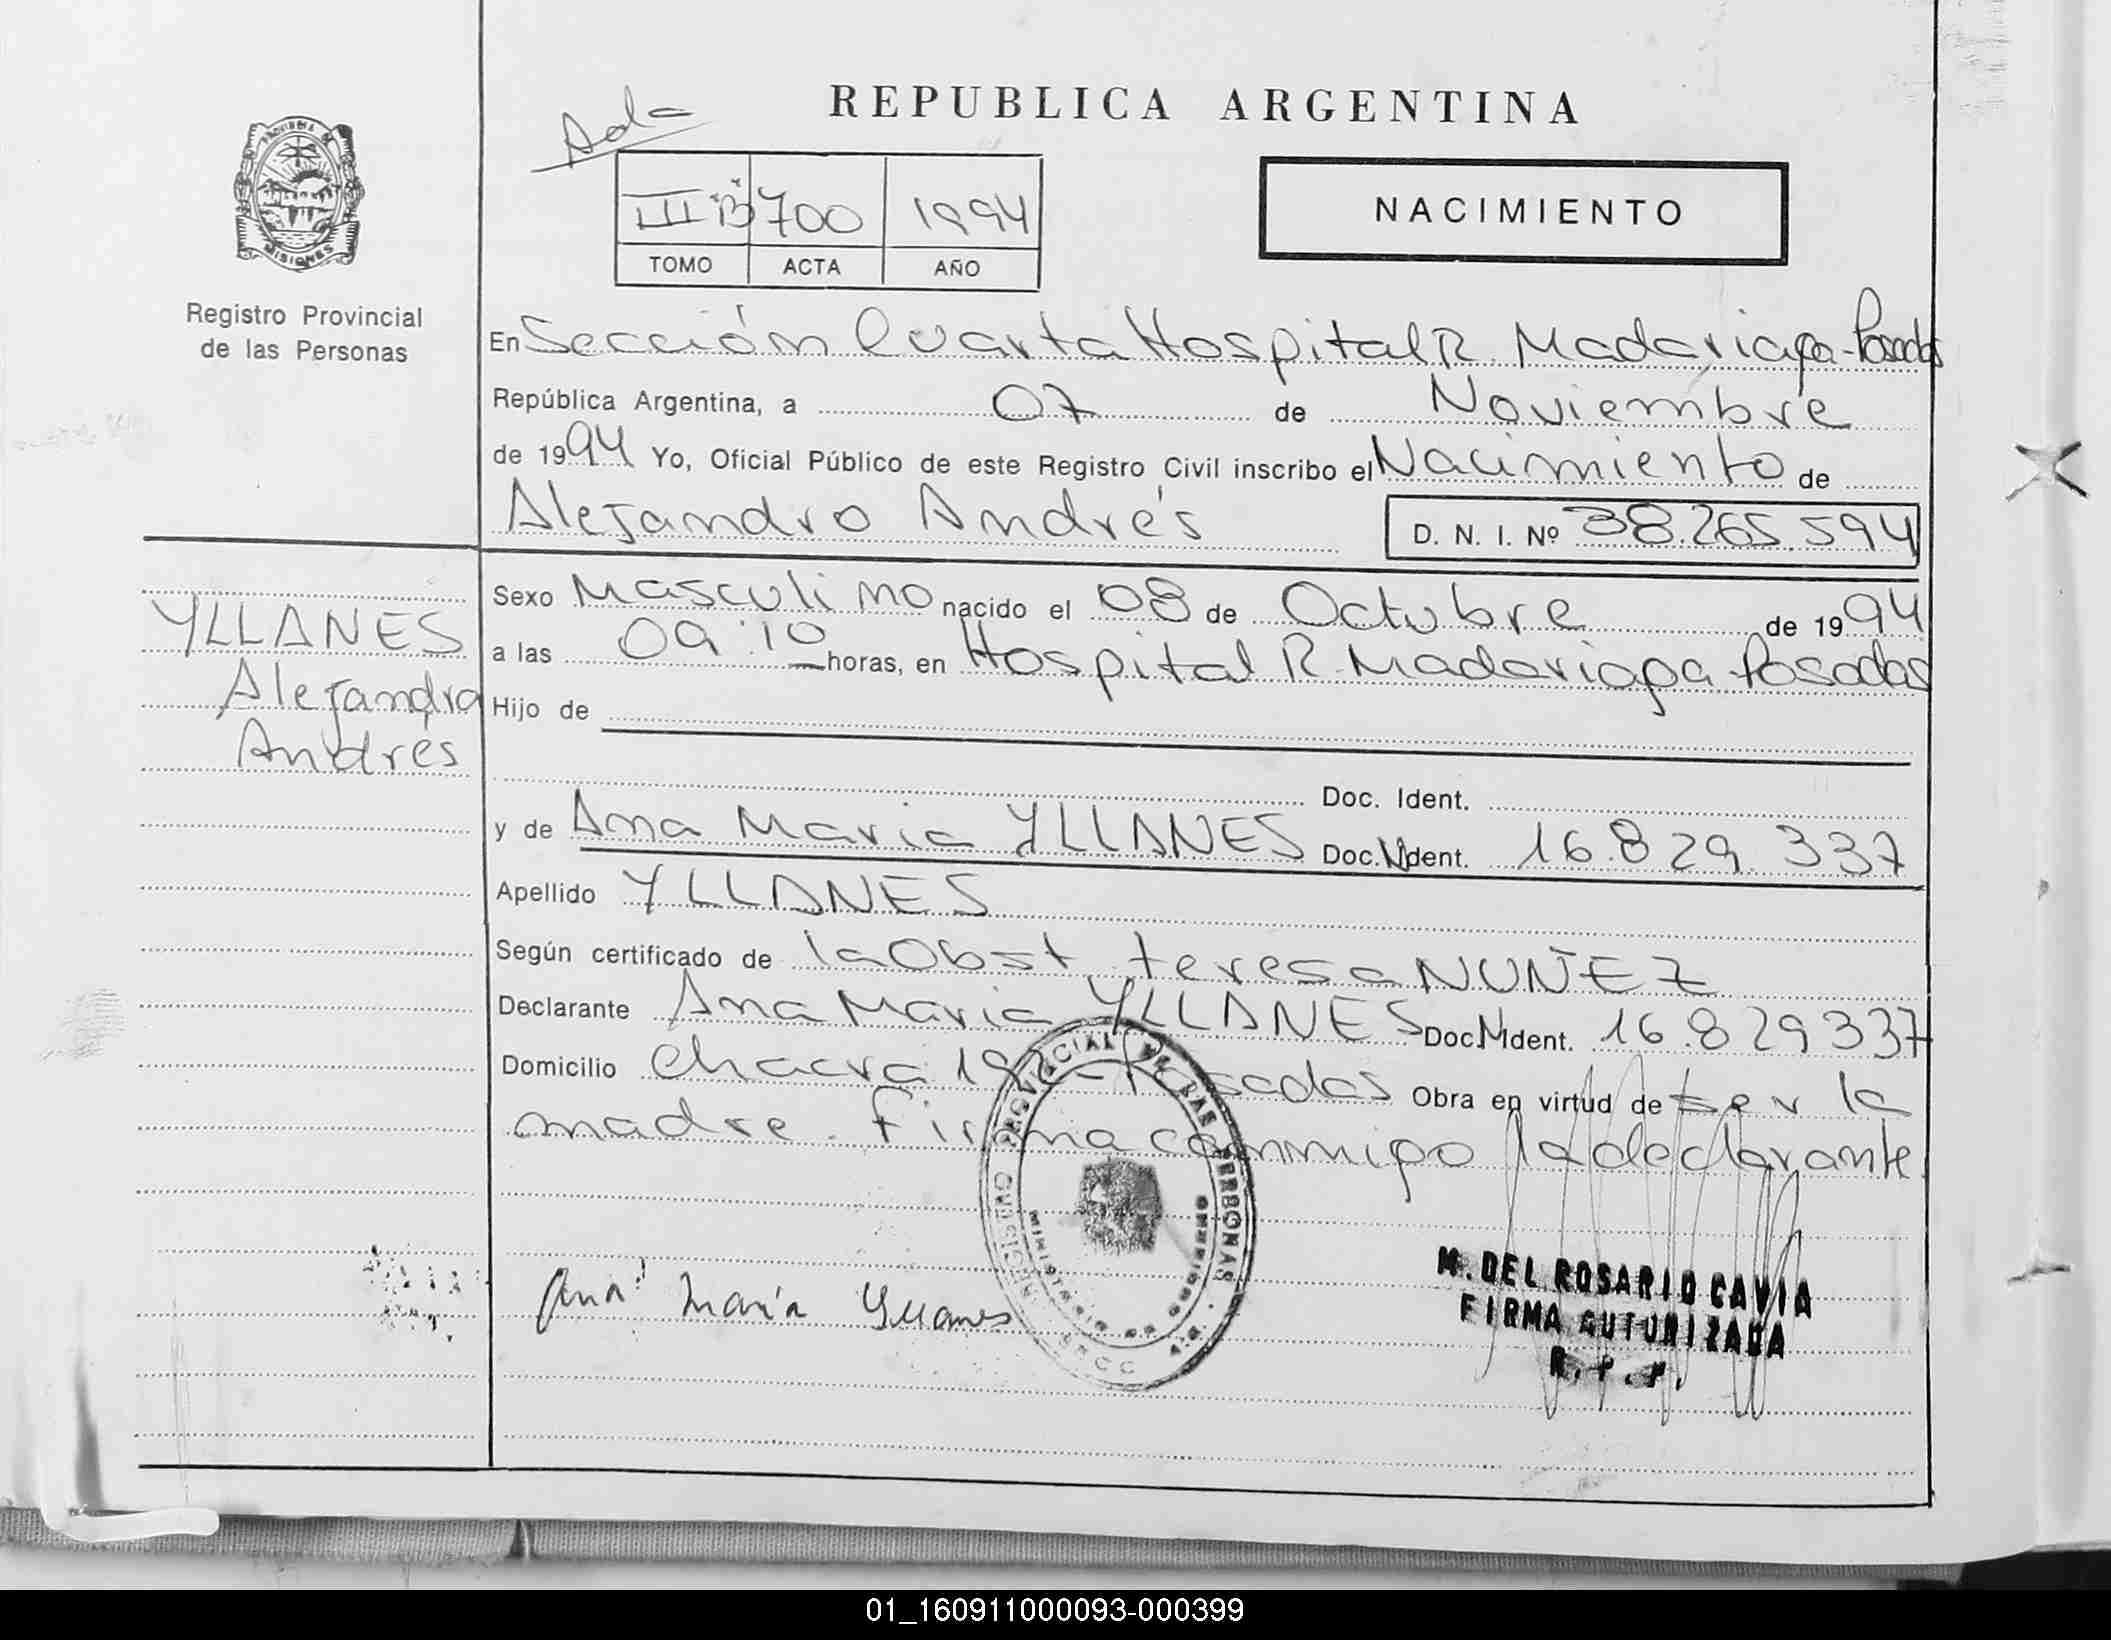 Ada
REPUBLICA ARGENTINA
III "B" 700 1994
TOMO ACTA AÑO
NACIMIENTO
PROVINCIA DE
MISIONES
Registro Provincial
de las Personas
En Sección Cuarta Hospital R. Madariaga - Posadas
República Argentina, a 07 de Noviembre
de 1994 Yo, Oficial Público de este Registro Civil inscribo el Nacimiento de
Alejandro Andrés D. N. I. Nº 38.265.594
YLLANES
Alejandro
Andrés
Sexo Masculino nacido el 08 de Octubre de 1994
a las 09:10 horas, en Hospital R. Madariaga - Posadas
Hijo de
Doc. Ident.
y de Ana Maria YLLANES Doc. Ident. 16.829.337
Apellido YLLANES
Según certificado de la Obst. teresa NUÑEZ
Declarante Ana Maria YLLANES Doc. Ident. 16.829337
Domicilio Chacra 192 - Posadas Obra en virtud de ser la
madre. firma conmigo la declarante.
PROVINCIAL DE LAS PERSONAS
MISIONES
MINISTERIO DE GOBIERNO
Ana María Yllanes
M. DEL ROSARIO CAVIA
FIRMA AUTORIZADA
R. P. P.
01_160911000093-000399